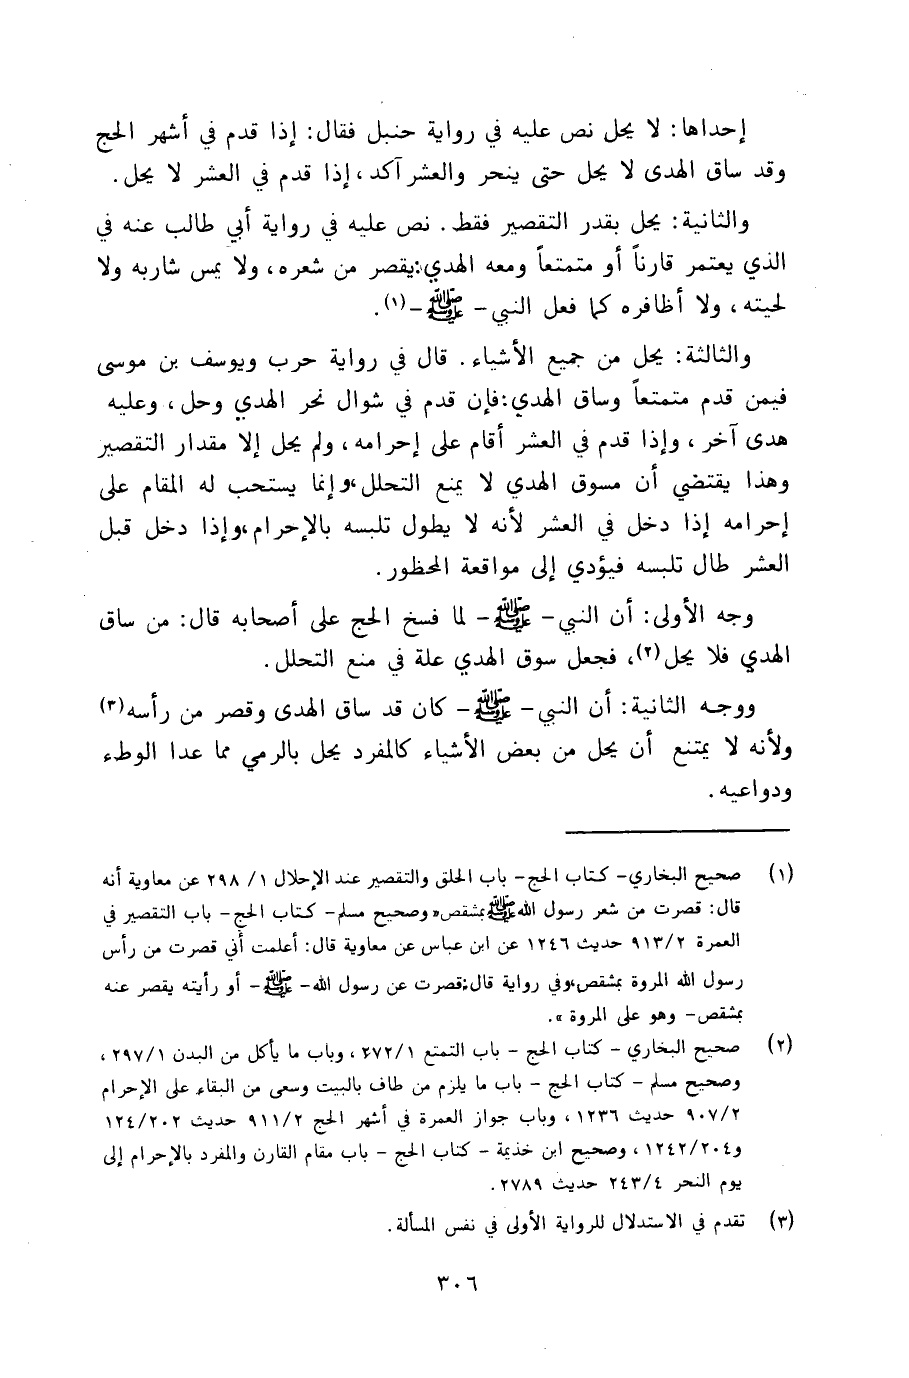 إحداها: لا يحل نص عليه في رواية حنبل فقال: إذا قدم في أشهر الحج
وقد ساق الهدى لا يحل حتى ينحر والعشر آكد، إذا قدم في العشر لا يحل.
والثانية: يحل بقدر التقصير فقط. نص عليه في رواية أبي طالب عنه في
الذي يعتمر قارناً أو متمتعاً ومعه الهدي: يقصر من شعره، ولا يمس شاربه ولا
لحيته، ولا أظافره كما فعل النبي- ﷺ -(١).
والثالثة: يحل من جميع الأشياء. قال في رواية حرب ويوسف بن موسى
فيمن قدم متمتعاً وساق الهدي: فإن قدم في شوال نحر الهدي وحل، وعليه
هدى آخر، وإذا قدم في العشر أقام على إحرامه، ولم يحل إلا مقدار التقصير
وهذا يقتضي أن مسوق الهدي لا يمنع التحلل، وإنما يستحب له المقام على
إحرامه إذا دخل في العشر لأنه لا يطول تلبسه بالإحرام، وإذا دخل قبل
العشر طال تلبسه فيؤدي إلى مواقعة المحظور.
وجه الأولى: أن النبي- ﷺ - لما فسخ الحج على أصحابه قال: من ساق
الهدي فلا يحل(٢)، فجعل سوق الهدي علة في منع التحلل.
ووجه الثانية: أن النبي- ﷺ - كان قد ساق الهدى وقصر من رأسه(٣)
ولأنه لا يمتنع أن يحل من بعض الأشياء كالمفرد يحل بالرمي مما عدا الوطء
ودواعيه.
(١) صحيح البخاري- كتاب الحج- باب الحلق والتقصير عند الإحلال ١/ ٢٩٨ عن معاوية أنه
قال: قصرت من شعر رسول الله ﷺ بمشقص» وصحيح مسلم- كتاب الحج- باب التقصير في
العمرة ٩١٣/٢ حديث ١٢٤٦ عن ابن عباس عن معاوية قال: أعلمت أني قصرت من رأس
رسول الله المروة بمشقص، وفي رواية قال: قصرت عن رسول الله- ﷺ - أو رأيته يقصر عنه
بمشقص- وهو على المروة».
(٢) صحيح البخاري - كتاب الحج - باب التمتع ٢٧٢/١، وباب ما يأكل من البدن ٢٩٧/١،
وصحيح مسلم - كتاب الحج - باب ما يلزم من طاف بالبيت وسعى من البقاء على الإحرام
٩٠٧/٢ حديث ١٢٣٦، وباب جواز العمرة في أشهر الحج ٩١١/٢ حديث ١٢٤/٢٠٢
و١٢٤٢/٢٠٤، وصحيح ابن خذيمة - كتاب الحج - باب مقام القارن والمفرد بالإحرام إلى
يوم النحر ٢٤٣/٤ حديث ٢٧٨٩.
(٣) تقدم في الاستدلال للرواية الأولى في نفس المسألة.
٣٠٦